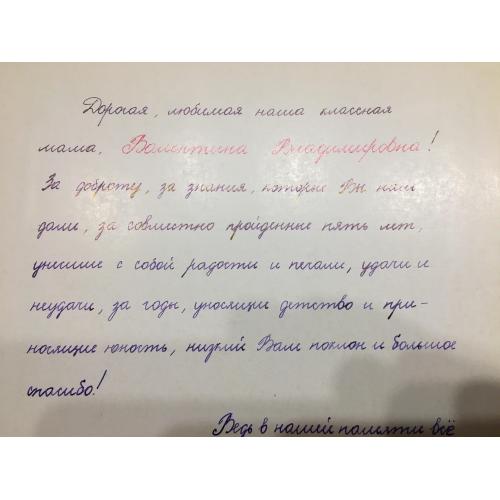 Дорогая, любимая наша классная
мама, Валентина Владимировна!
За доброту, за знания, которые Вы нам
дали, за совместно пройденные пять лет,
унесшие с собой радости и печали, удачи и
неудачи, за годы, уносящие детство и при-
носящие юность, низкий Вам поклон и большое
спасибо!
Ведь в нашей памяти всё